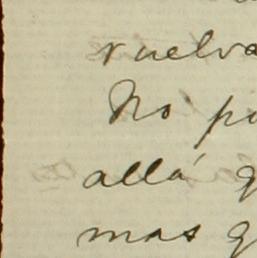 vuelva
No po
allá q
mas q